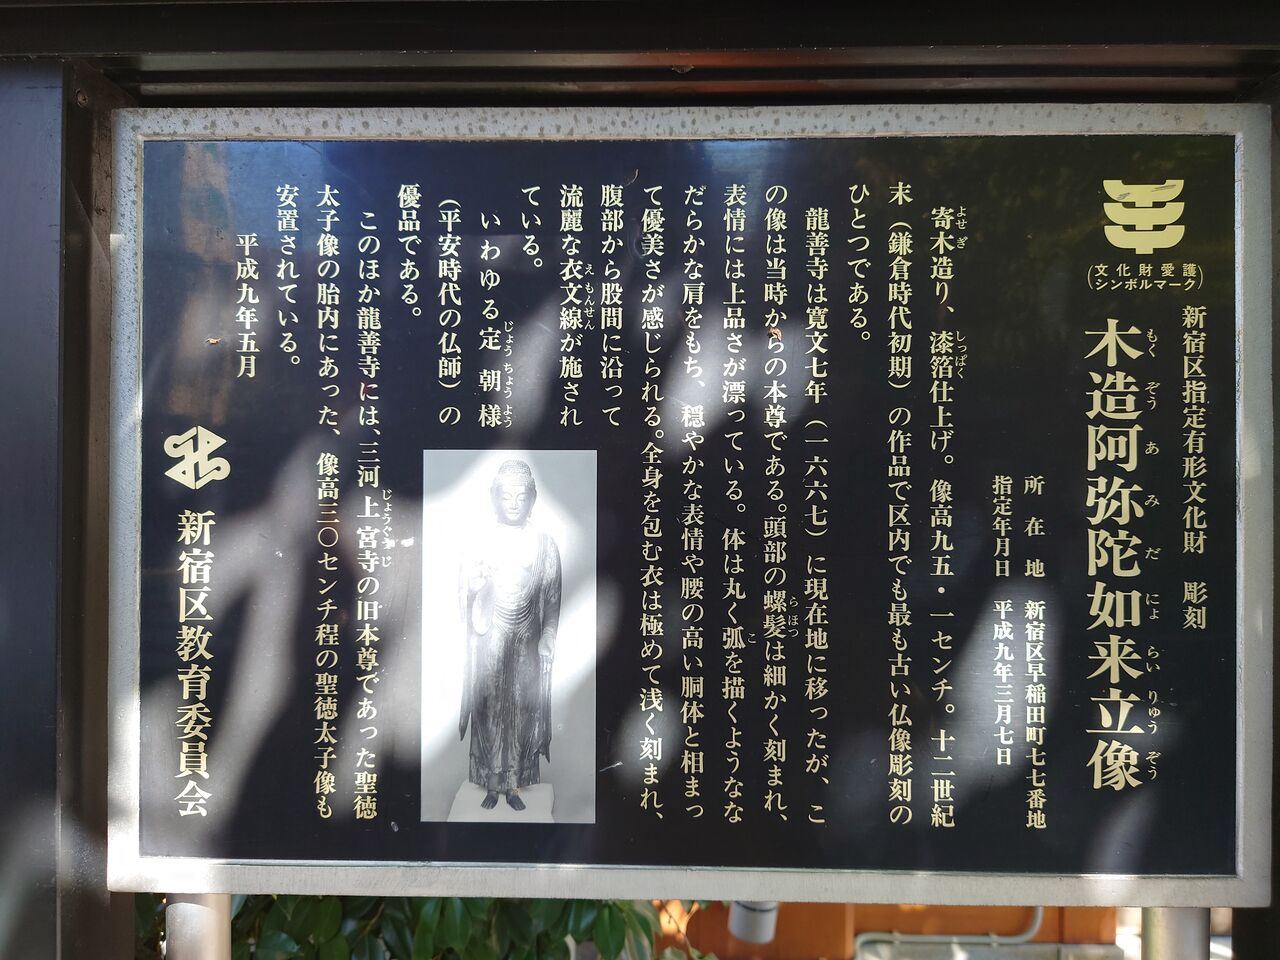 (文化財愛護
シンボルマーク)
新宿区指定有形文化財 彫刻
木造阿弥陀如来立像
もくぞうあみだにょらいりゅうぞう
所在地 新宿区早稲田町七七番地
指定年月日 平成九年三月七日
寄木造り、漆箔仕上げ。像高九五・一センチ。十二世紀
よせぎ しっぱく
末(鎌倉時代初期)の作品で区内でも最も古い仏像彫刻の
ひとつである。
龍善寺は寛文七年(一六六七)に現在地に移ったが、こ
の像は当時からの本尊である。頭部の螺髪は細かく刻まれ、
らほつ
表情には上品さが漂っている。体は丸く弧を描くようなな
こ
だらかな肩をもち、穏やかな表情や腰の高い胴体と相まっ
て優美さが感じられる。全身を包む衣は極めて浅く刻まれ、
腹部から股間に沿って
流麗な衣文線が施され
えもんせん
ている。
いわゆる定朝様
じょうちょうよう
(平安時代の仏師)の
優品である。
このほか龍善寺には、三河上宮寺の旧本尊であった聖徳
じょうぐうじ
太子像の胎内にあった、像高三〇センチ程の聖徳太子像も
安置されている。
平成九年五月
新宿区教育委員会